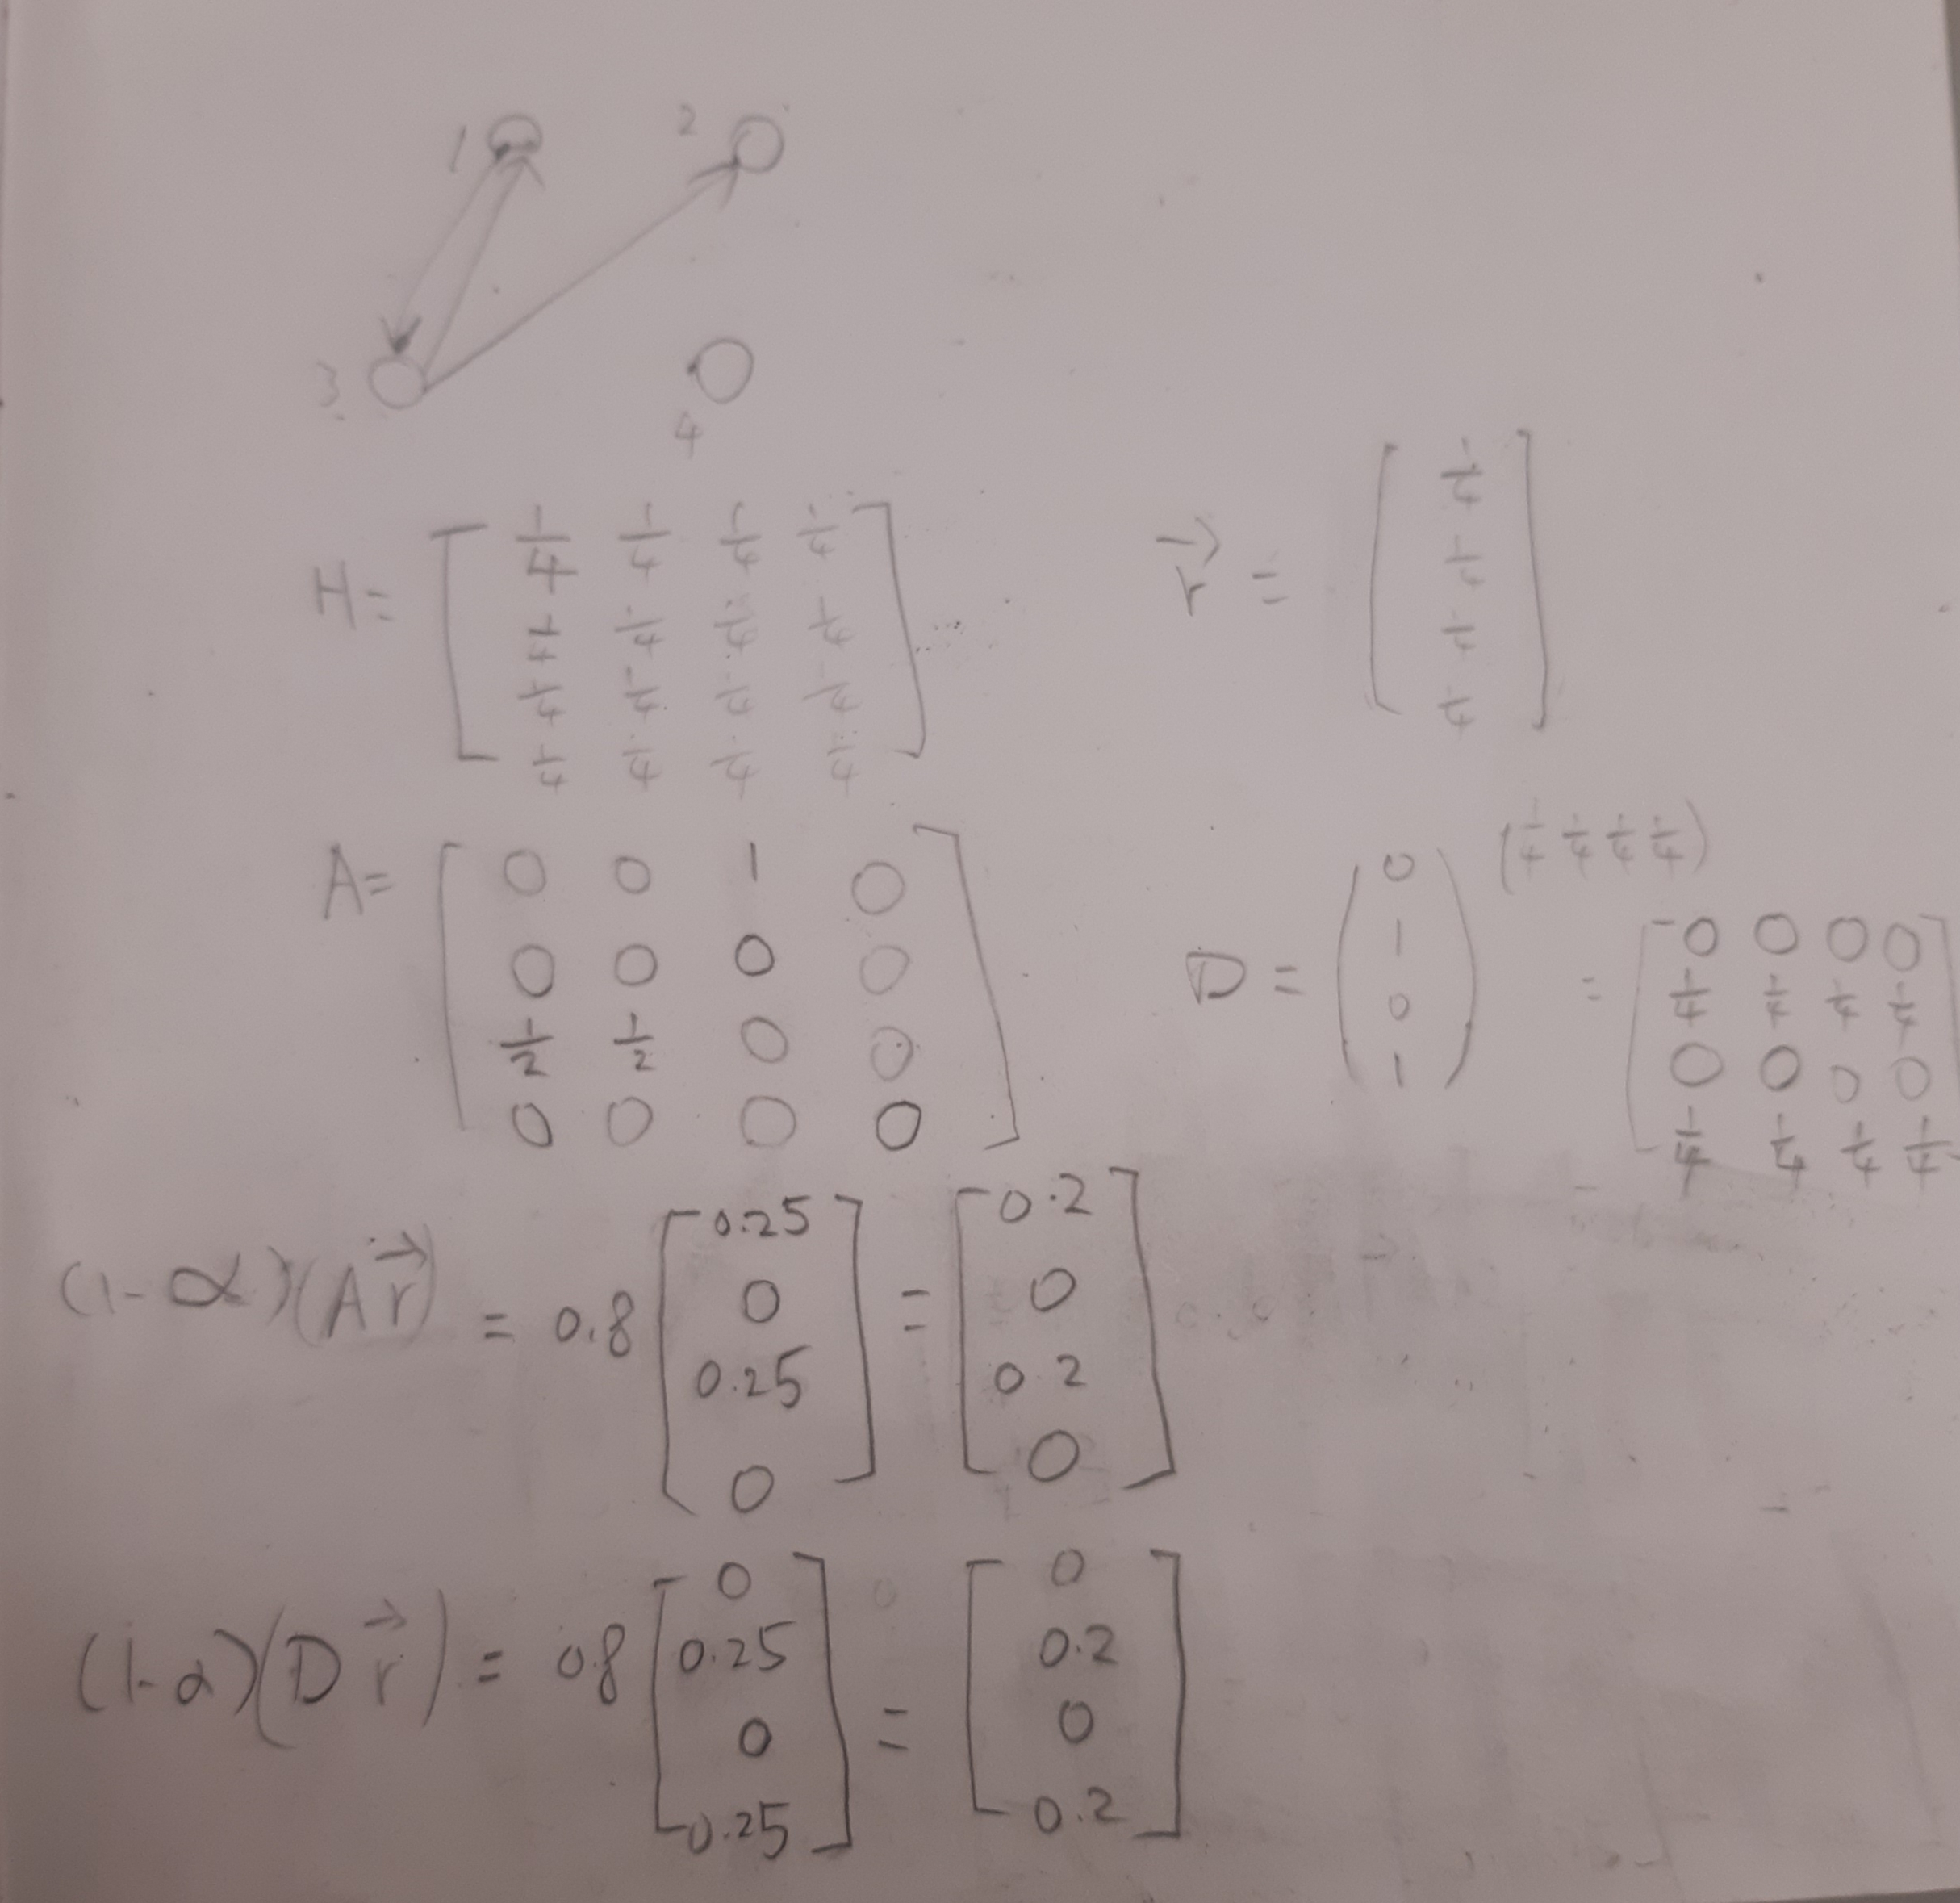 1 2
3
4
H = [ 1/4 1/4 1/4 1/4
1/4 1/4 1/4 1/4
1/4 1/4 1/4 1/4
1/4 1/4 1/4 1/4 ]
r⃗ = [ 1/4
1/4
1/4
1/4 ]
A = [ 0 0 1 0
0 0 0 0
1/2 1/2 0 0
0 0 0 0 ]
D = ( 0
1
0
1 ) (1/4 1/4 1/4 1/4)
= [ 0 0 0 0
1/4 1/4 1/4 1/4
0 0 0 0
1/4 1/4 1/4 1/4 ]
(1-α)(Ar⃗) = 0.8 [ 0.25
0
0.25
0 ] = [ 0.2
0
0.2
0 ]
(1-α)(Dr⃗) = 0.8 [ 0
0.25
0
0.25 ] = [ 0
0.2
0
0.2 ]